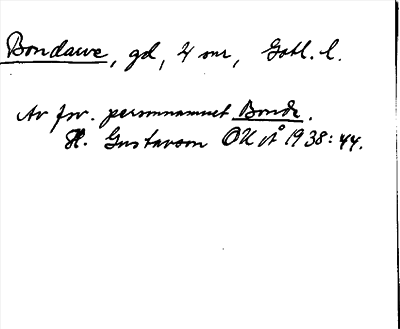 Bondarve, gd, 4 mr, Gotl. l.
Av fsv. personnamnet Bonde.
H. Gustavson OUÅ 1938: 44.